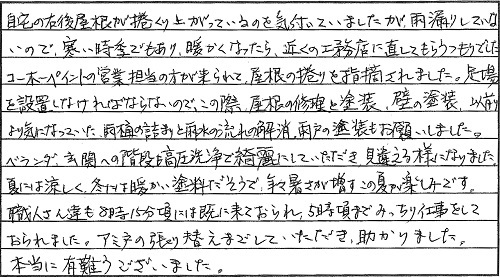 自宅の右後屋根が捲くり上がっているのを気付いていましたが、雨漏りしていな
いので、寒い時季でもあり、暖かくなったら、近くの工務店に直してもらうつもりでした
コーホーペイントの営業担当の方が来られて、屋根の捲りを指摘されました。足場
を設置しなければならないので、この際、屋根の修理と塗装、壁の塗装、以前
より気になっていた、雨樋の詰まりと雨水の流れの解消、雨戸の塗装もお願いしました。
ベランダ、玄関への階段も高圧洗浄で綺麗にしていただき、見違える様になりました。
夏には涼しく、冬には暖かい塗料だそうで、年々暑さが増すこの夏が楽しみです。
職人さん達も8時15分頃には既に来ておられ、5時頃までみっちり仕事をして
おられました。アミ戸の張り替えまでしていただき、助かりました。
本当に有難うございました。